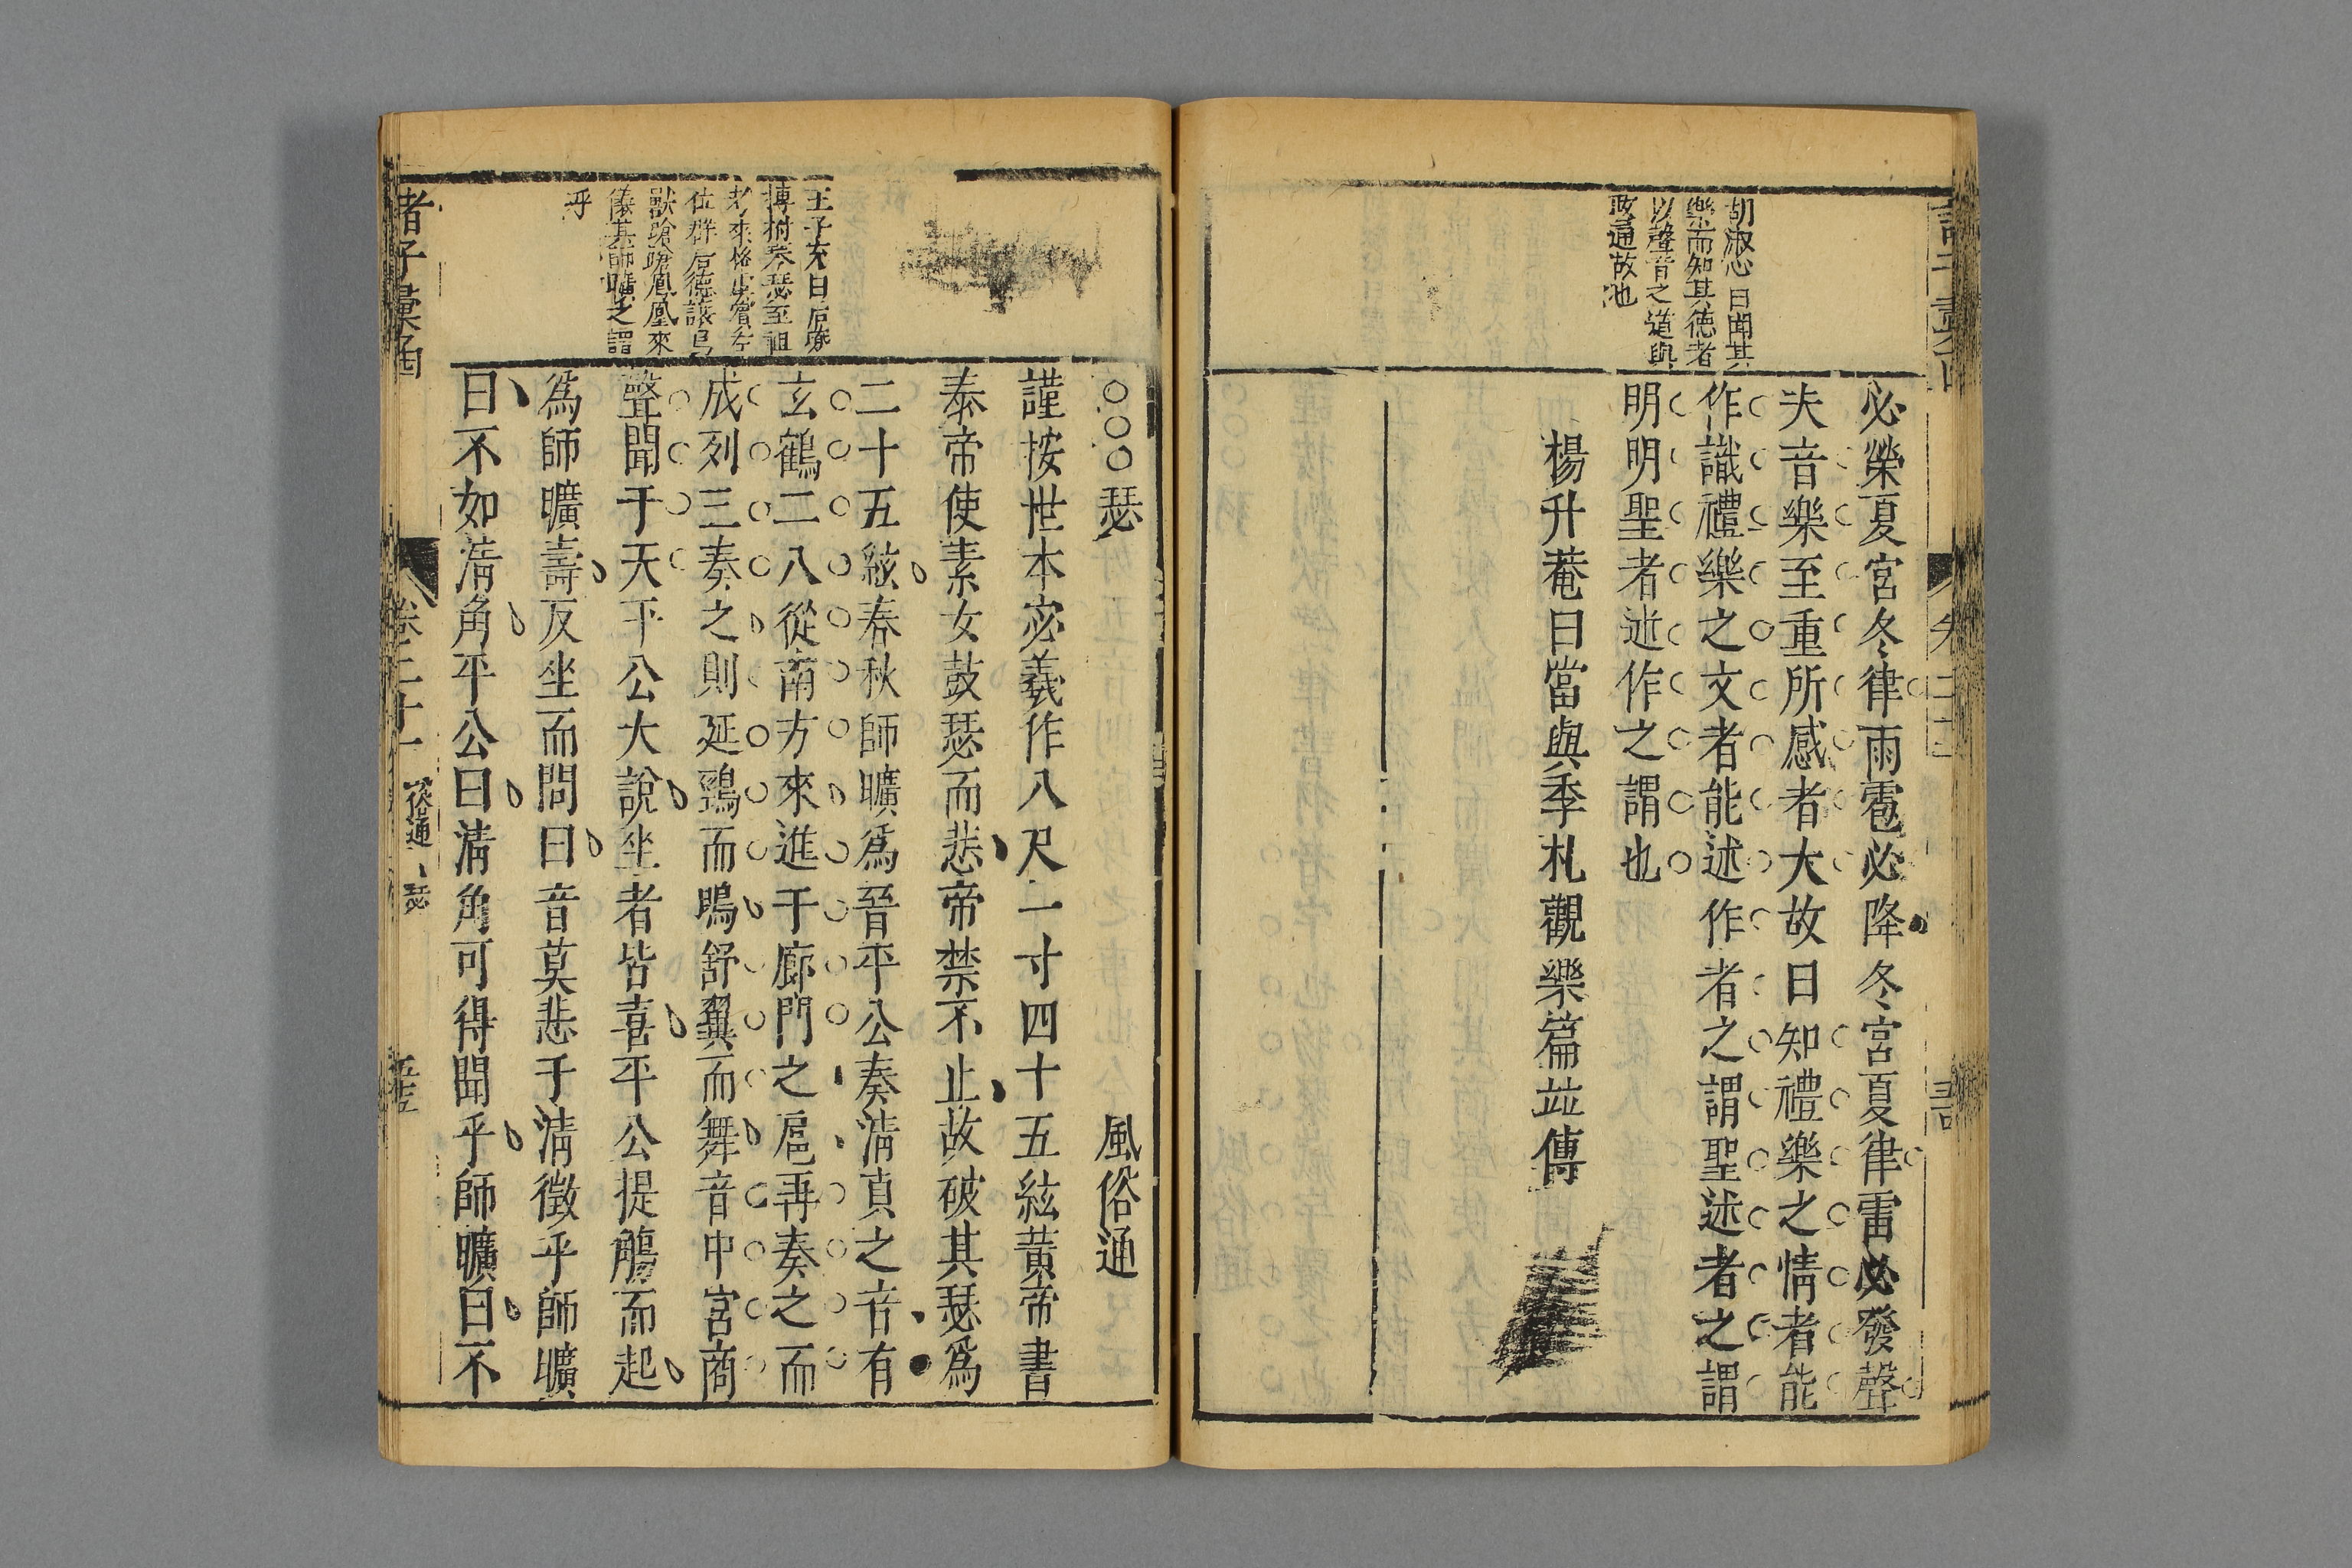 胡淑心曰聞其
樂而知其德者
以聲音之道與
政通故也
必榮夏宮冬律雨雹必降冬宮夏律雷必發聲
夫音樂至重所感者大故曰知禮樂之情者能
作識禮樂之文者能述作者之謂聖述者之謂
明明聖者述作之謂也
楊升菴曰當與季札觀樂篇並傳
王子充曰后夔
搏拊琴瑟至祖
考來格虞賓在
位群后德讓鳥
獸蹌蹌鳳凰來
儀其師曠之謂
乎
○○○瑟
風俗通
謹按世本宓羲作八尺二寸四十五絃黃帝書
泰帝使素女鼓瑟而悲帝禁不止故破其瑟爲
二十五絃春秋師曠爲晉平公奏清真之音有
玄鶴二八從南方來進于廊門之扈再奏之而
成列三奏之則延頸而鳴舒翼而舞音中宮商
聲聞于天平公大說坐者皆喜平公提觴而起
爲師曠壽反坐而問曰音莫悲于清徵乎師曠
曰不如清角平公曰清角可得聞乎師曠曰不
諸子彙函
卷二十一
俗通
瑟